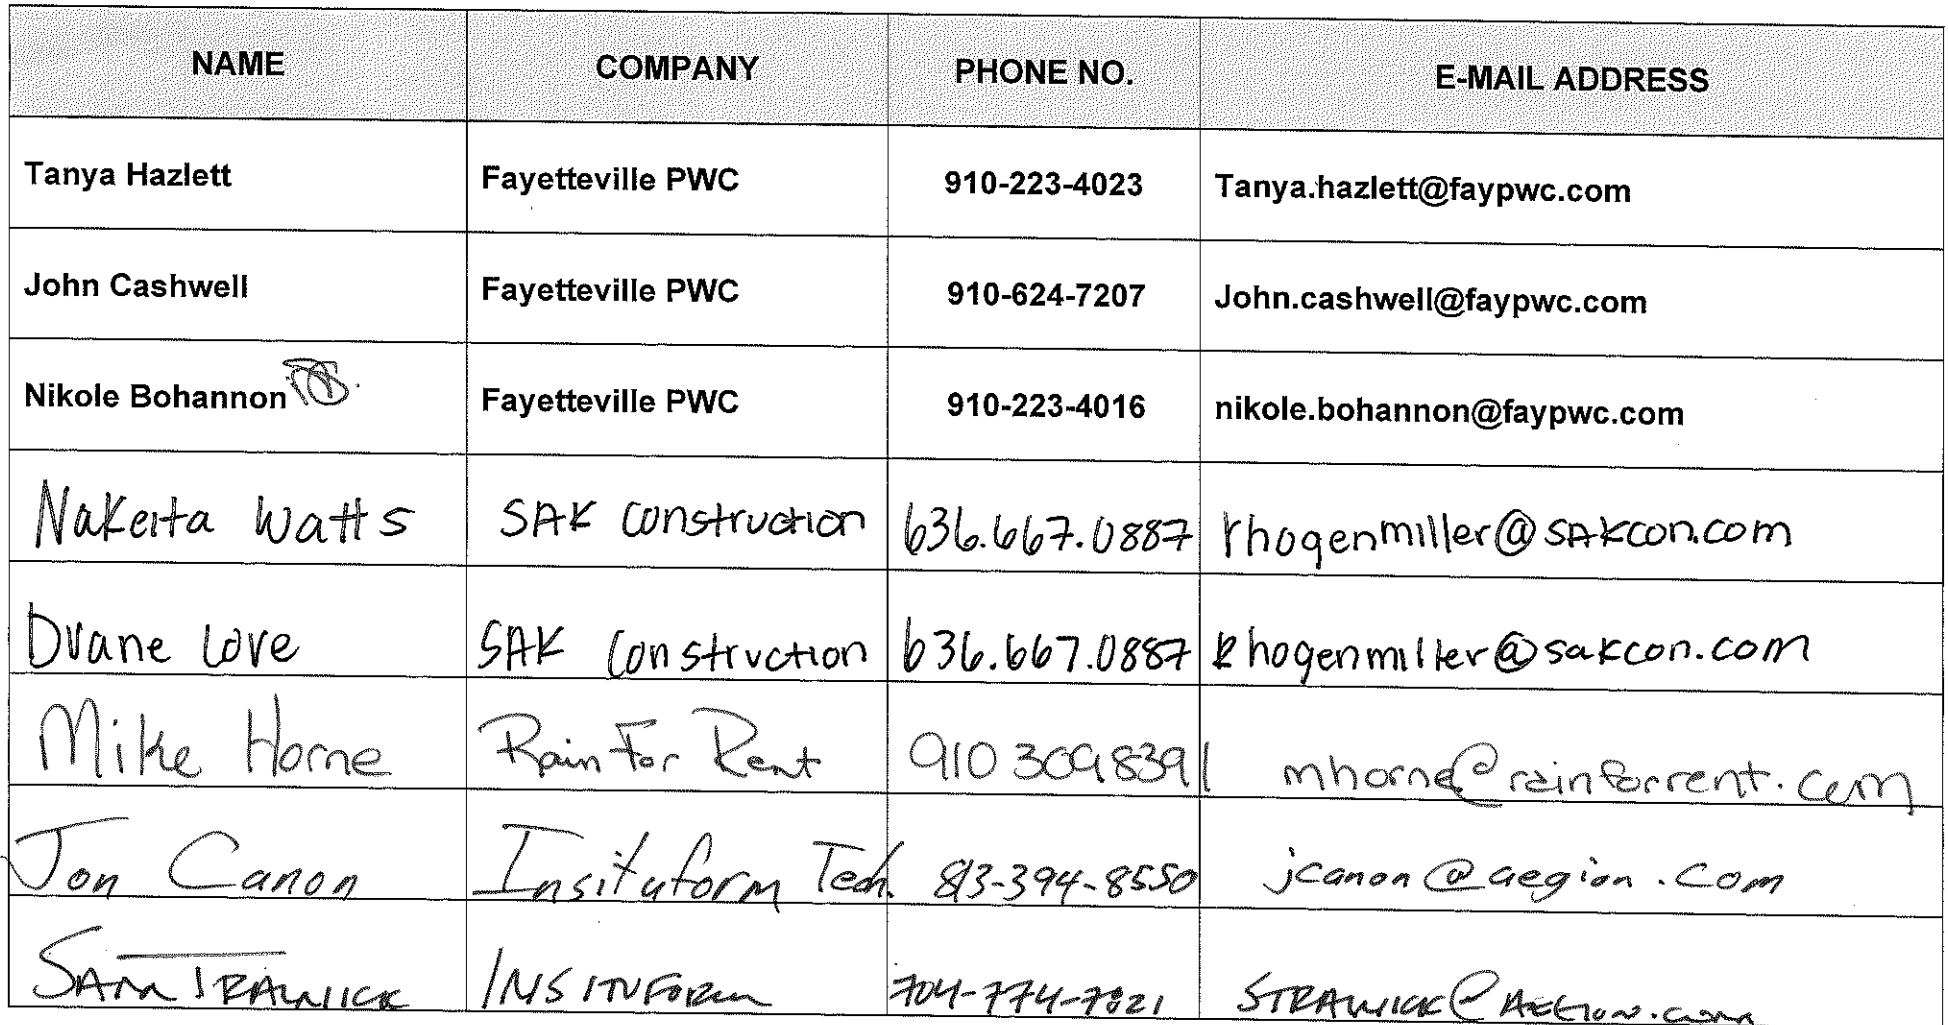 NAME COMPANY PHONE NO. E-MAIL ADDRESS
Tanya Hazlett Fayetteville PWC 910-223-4023 Tanya.hazlett@faypwc.com
John Cashwell Fayetteville PWC 910-624-7207 John.cashwell@faypwc.com
Nikole Bohannon Fayetteville PWC 910-223-4016 nikole.bohannon@faypwc.com
Nakeita Watts SAK Construction 636.667.0887 rhogenmiller@sakcon.com
Duane Love SAK Construction 636.667.0887 Rhogenmiller@sakcon.com
Mike Horne Rain For Rent 910 309 8391 mhorne@rainforrent.com
Jon Canon Insituform Tech. 813-394-8550 jcanon@aegion.com
SAM INSITUFORM 704-774-7821